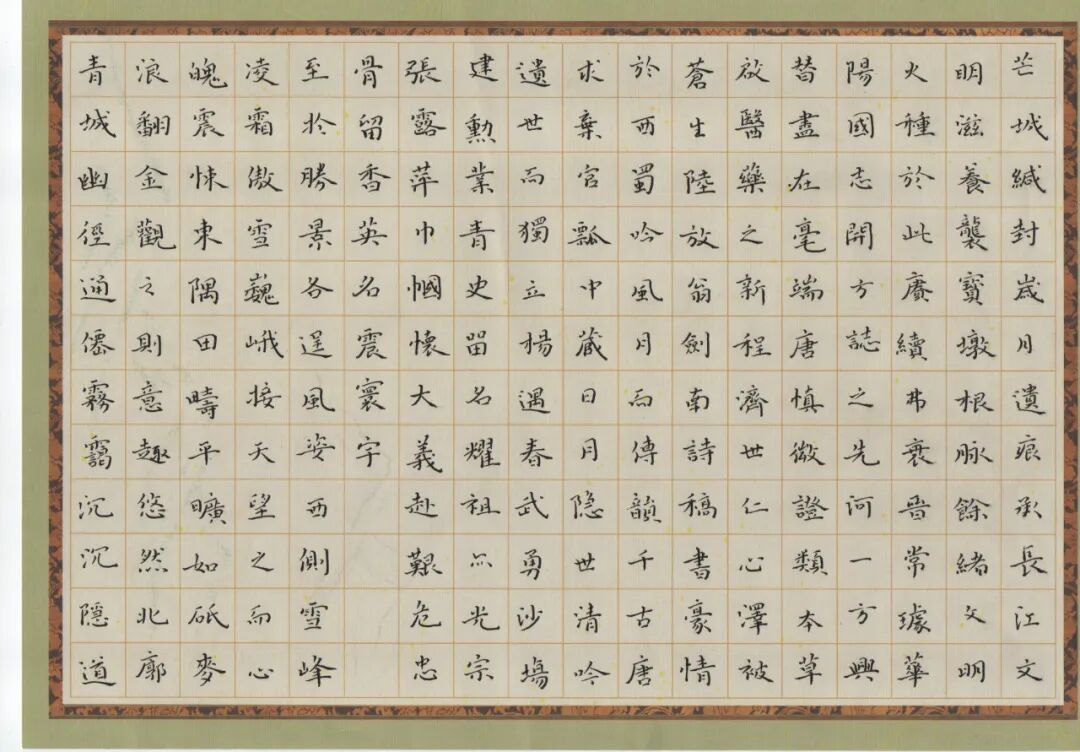 芒城緘封歲月遺痕承長江文
明滋養襲寶墩根脉餘緒文明
火種於此賡續弗衰晋常璩華
陽國志開方誌之先河一方興
替盡在毫端唐慎微證類本草
啟醫藥之新程濟世仁心澤被
蒼生陸放翁劍南詩稿書豪情
於西蜀吟風月而傳韻千古唐
求棄官瓢中藏日月隐世清吟
遺世而獨立楊遇春武勇沙場
建勳業青史留名耀祖亦光宗
張露萍巾幗懷大義赴艱危忠
骨留香英名震寰宇
至於勝景各逞風姿西側雪峰
凌霜傲雪巍峨接天望之而心
魄震悚東隅田疇平曠如砥麥
浪翻金觀之則意趣悠然北廓
青城幽徑通僊霧靄沉沉隱道